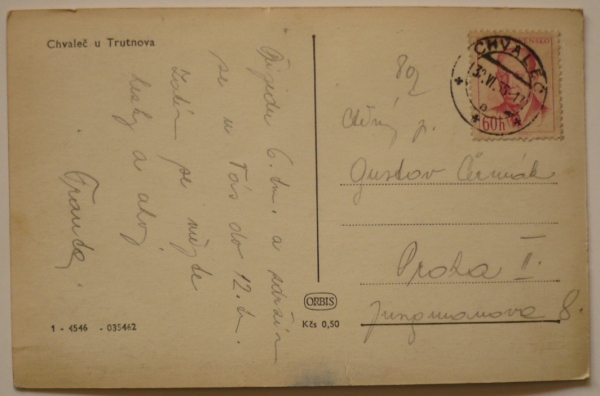 Chvaleč u Trutnova
Přijedu 6. tm. a zdržím
se u Vás do 12. tm.
Zatím se mějte
hezky a ahoj
Franta
1 - 4546 - 035462
ORBIS
Kčs 0,50
CHVALEČ
60h
Ctěný p.
Gustav Čermák
Praha II.
Jungmanova 8.